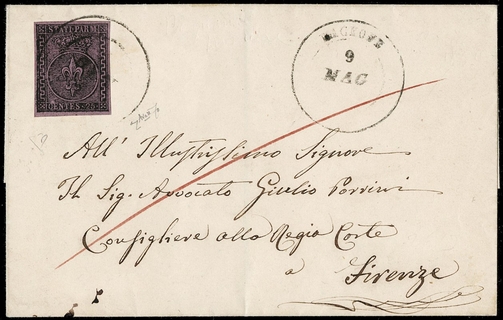 STATI PARM.
CENTES. 25
9
MAG
All' Illustrissimo Signore
Il Sig. Avvocato Giulio Porrini
Consigliere alla Regia Corte
a
Firenze